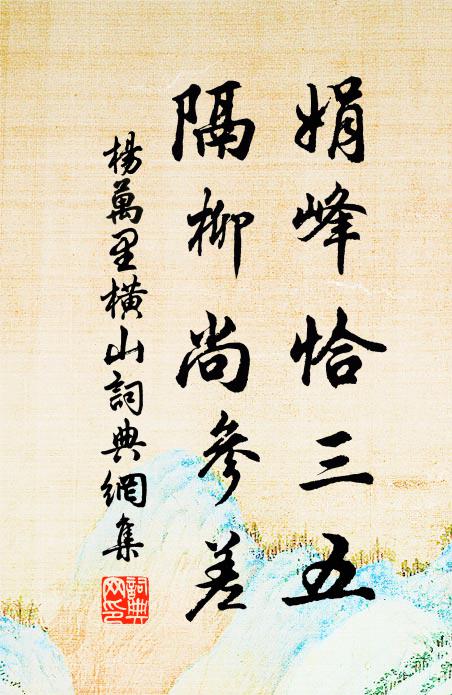 娟峰恰三五
隔柳尚參差
楊萬里橫山詞典網集
詞典網印